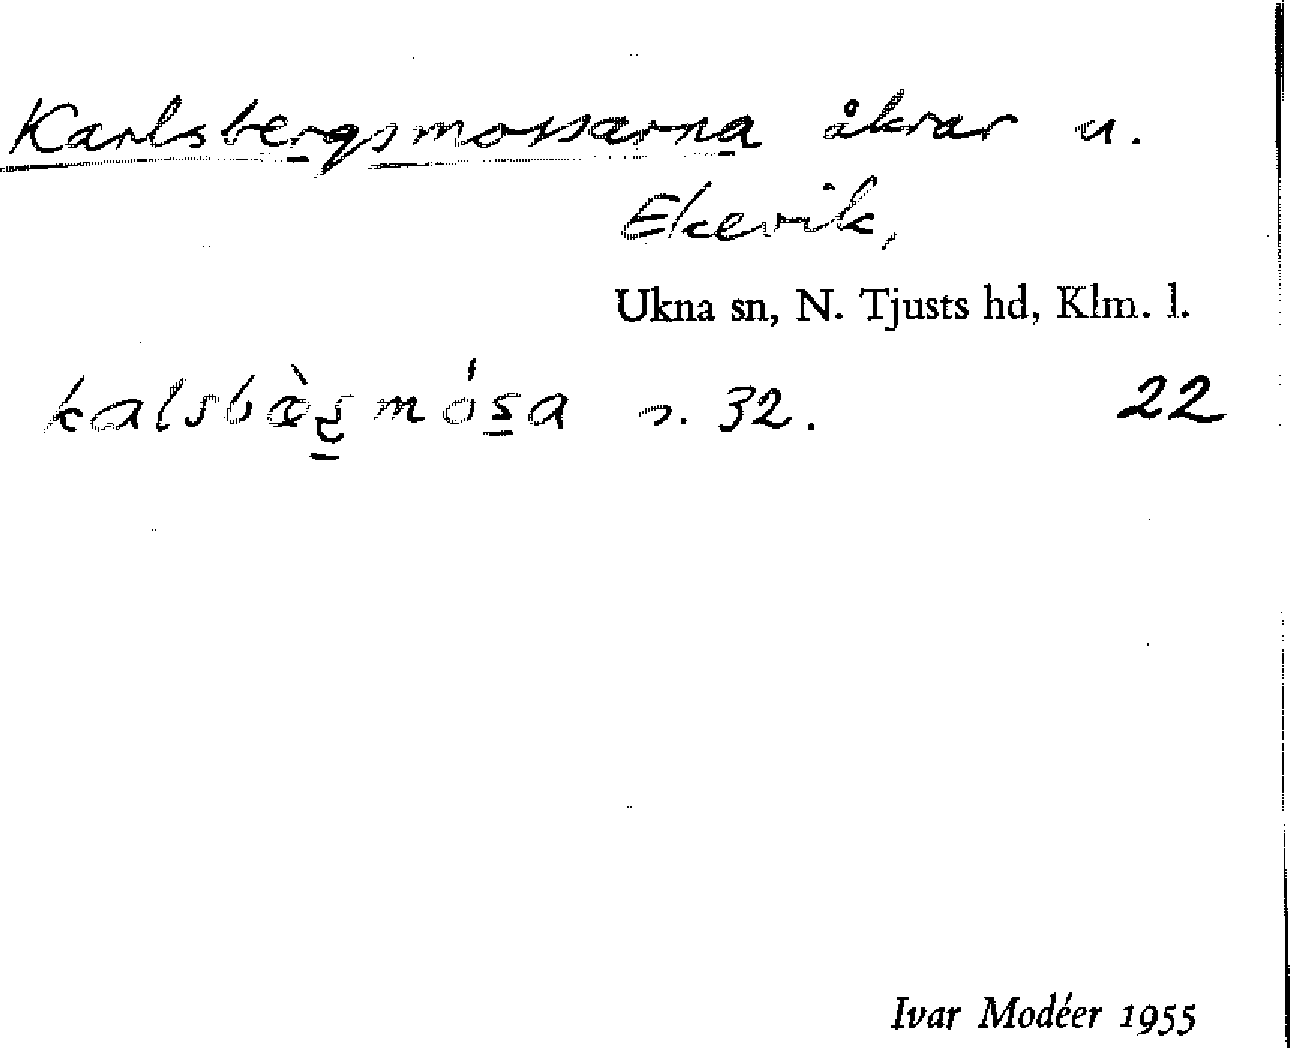 Karlsbergsmossarna åkrar u.
Ekevik,
Ukna sn, N. Tjusts hd, Klm. l.
s. 32. 22
Ivar Modéer 1955